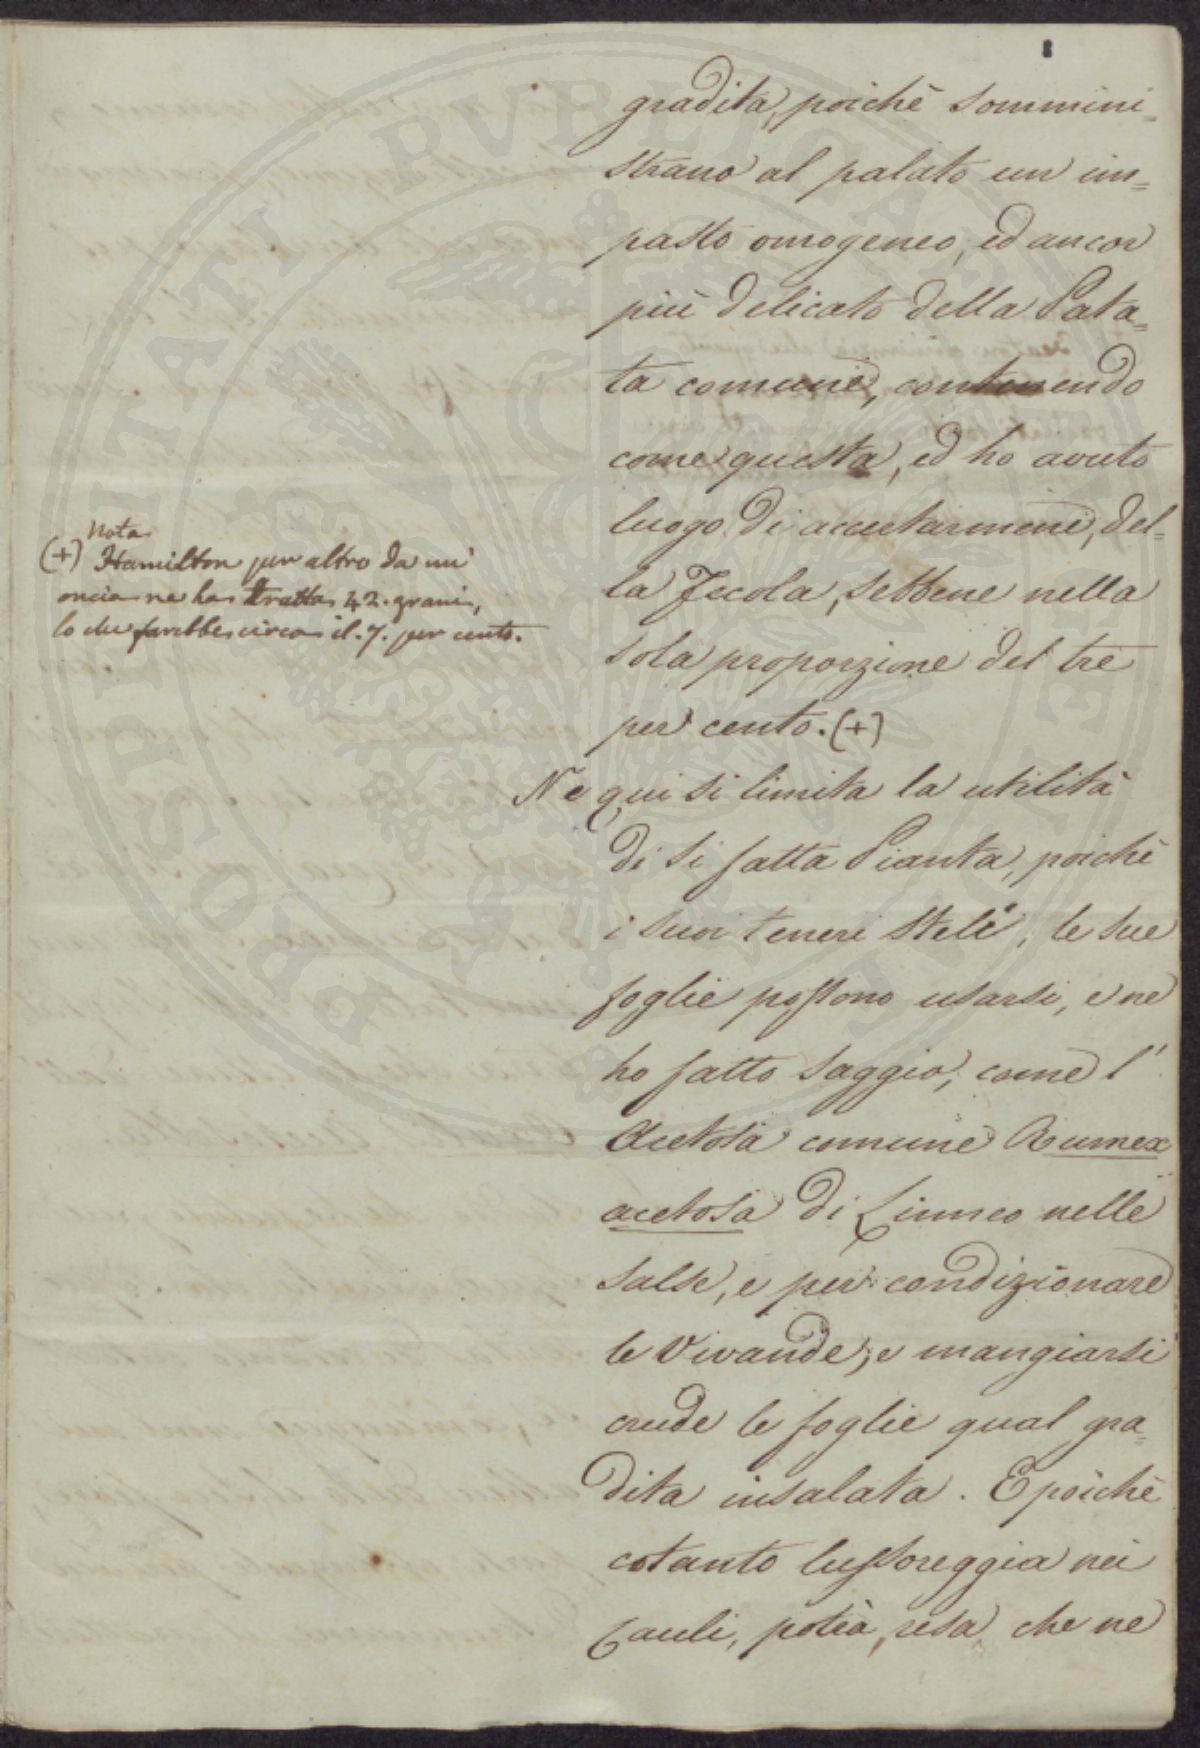 gradita, poichè sommini=
strano al palato un im=
pasto omogeneo, ed ancor
più delicato della Pata=
ta comune, contenendo
come questa, ed ho avuto
luogo di accertarmene, del=
la Fecola, sebbene nella
sola proporzione del tre
per cento. (+)
Nota
(+) Hamilton per altro da un'
oncia ne ha tratta 42. grani,
lo che farebbe circa il 7. per cento.
Ne qui si limita la utilità
di si fatta Pianta, poichè
i suoi teneri steli, le sue
foglie possono usarsi, e ne
ho fatto saggio, come l'
Acetosa comune Rumex
acetosa di Linneo nelle
salse, e per condizionare
le vivande, e mangiarsi
crude le foglie qual gra=
dita insalata. E poichè
cotanto lussoreggia nei
Cauli, potrà, resa che ne
PVBLICAE
VTILITATI
PROSPERITATI